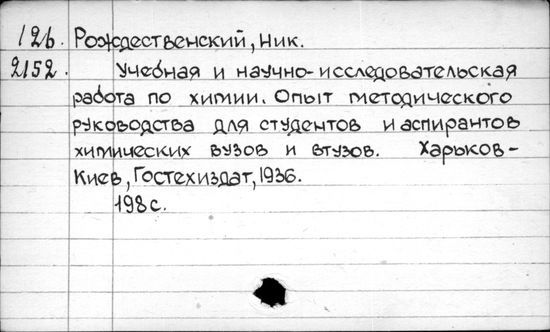 126. Рождественский, Ник.
2152. Учебная и научно-исследовательская
работа по химии. Опыт методического
руководства для студентов и аспирантов
химических вузов и втузов. Харьков-
Киев, Гостехиздат, 1936.
198 с.